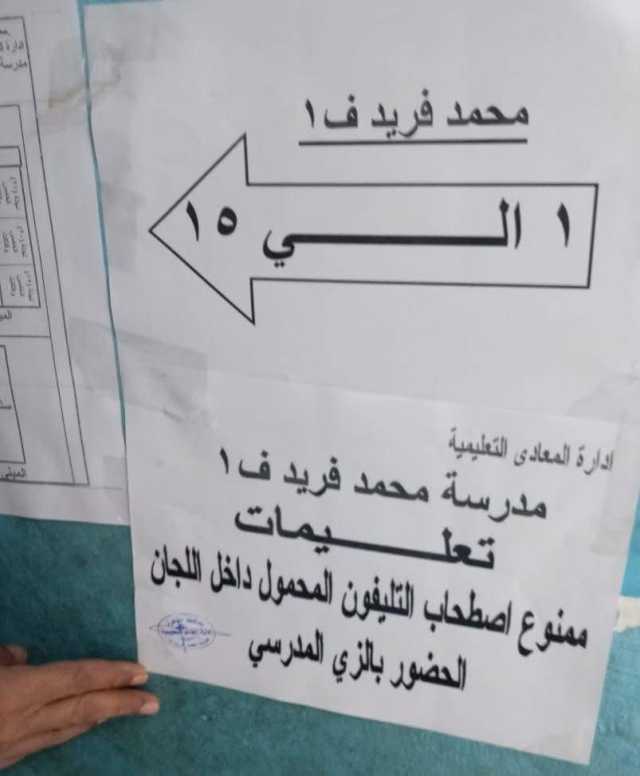 محمد فريد ف١
١ الـــــي ١٥
ادارة المعادى التعليمية
مدرسة محمد فريد ف١
تعلـــــيمات
ممنوع اصطحاب التليفون المحمول داخل اللجان
الحضور بالزي المدرسي